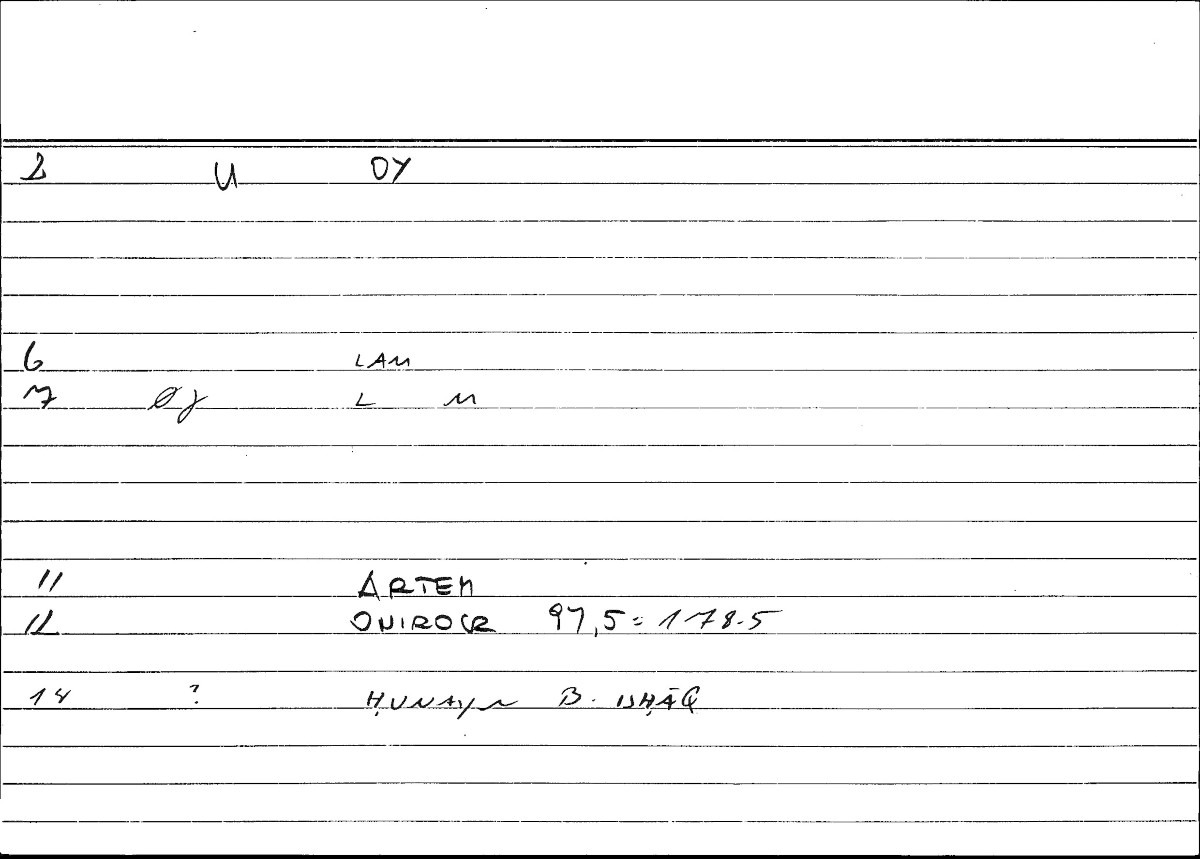 2 U OY
6 LAM
7 Øy L M
11 ARTEM
12 ONIROCR 97,5 = 178.5
14 ? ḤUNAYN B. ISḤĀQ